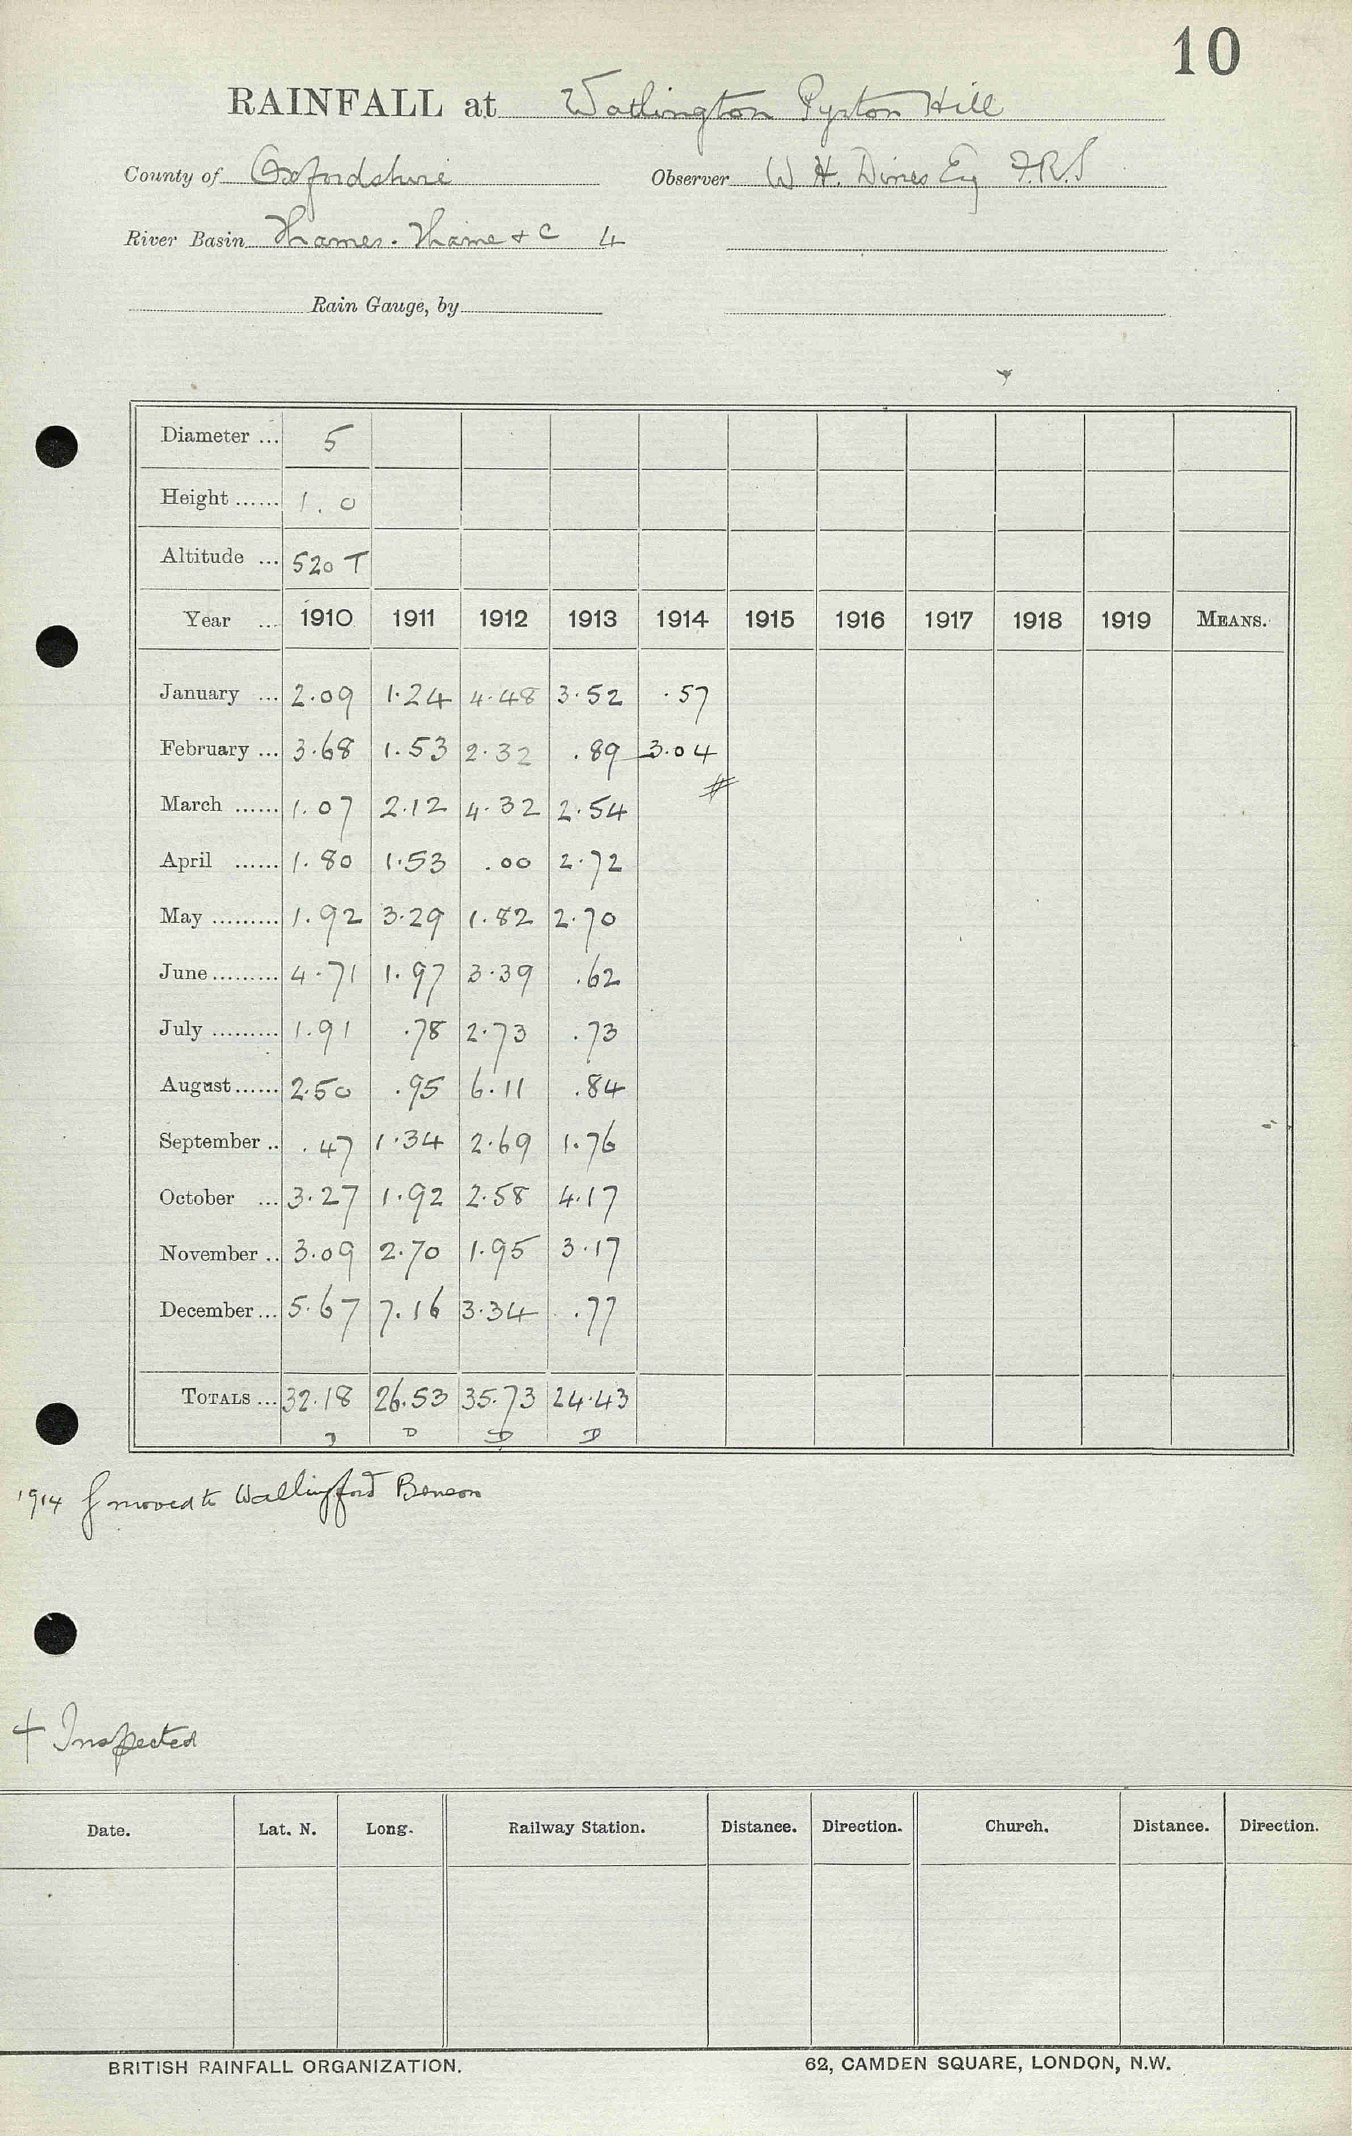 10
RAINFALL at Watlington Pyrton Hill
County of Oxfordshire Observer W H. Dines Esq F.R.S
River Basin Thames. Thame & C 4
Rain Gauge, by
Diameter ... 5
Height ...... 1.0
Altitude ... 520 T
Year ... 1910 1911 1912 1913 1914 1915 1916 1917 1918 1919 MEANS.
January ... 2.09 1.24 4.48 3.52 .57
February ... 3.68 1.53 2.32 .89 3.04
March ...... 1.07 2.12 4.32 2.54 #
April ...... 1.80 1.53 .00 2.72
May ......... 1.92 3.29 1.82 2.70
June ......... 4.71 1.97 3.39 .62
July ......... 1.91 .78 2.73 .73
August ...... 2.50 .95 6.11 .84
September .. .47 1.34 2.69 1.76
October ... 3.27 1.92 2.58 4.17
November .. 3.09 2.70 1.95 3.17
December ... 5.67 7.16 3.34 .77
TOTALS ... 32.18 26.53 35.73 24.43
D D D D
1914 moved to Wallingford Benson
+ Inspected
Date. Lat. N. Long. Railway Station. Distance. Direction. Church. Distance. Direction.
BRITISH RAINFALL ORGANIZATION. 62, CAMDEN SQUARE, LONDON, N.W.